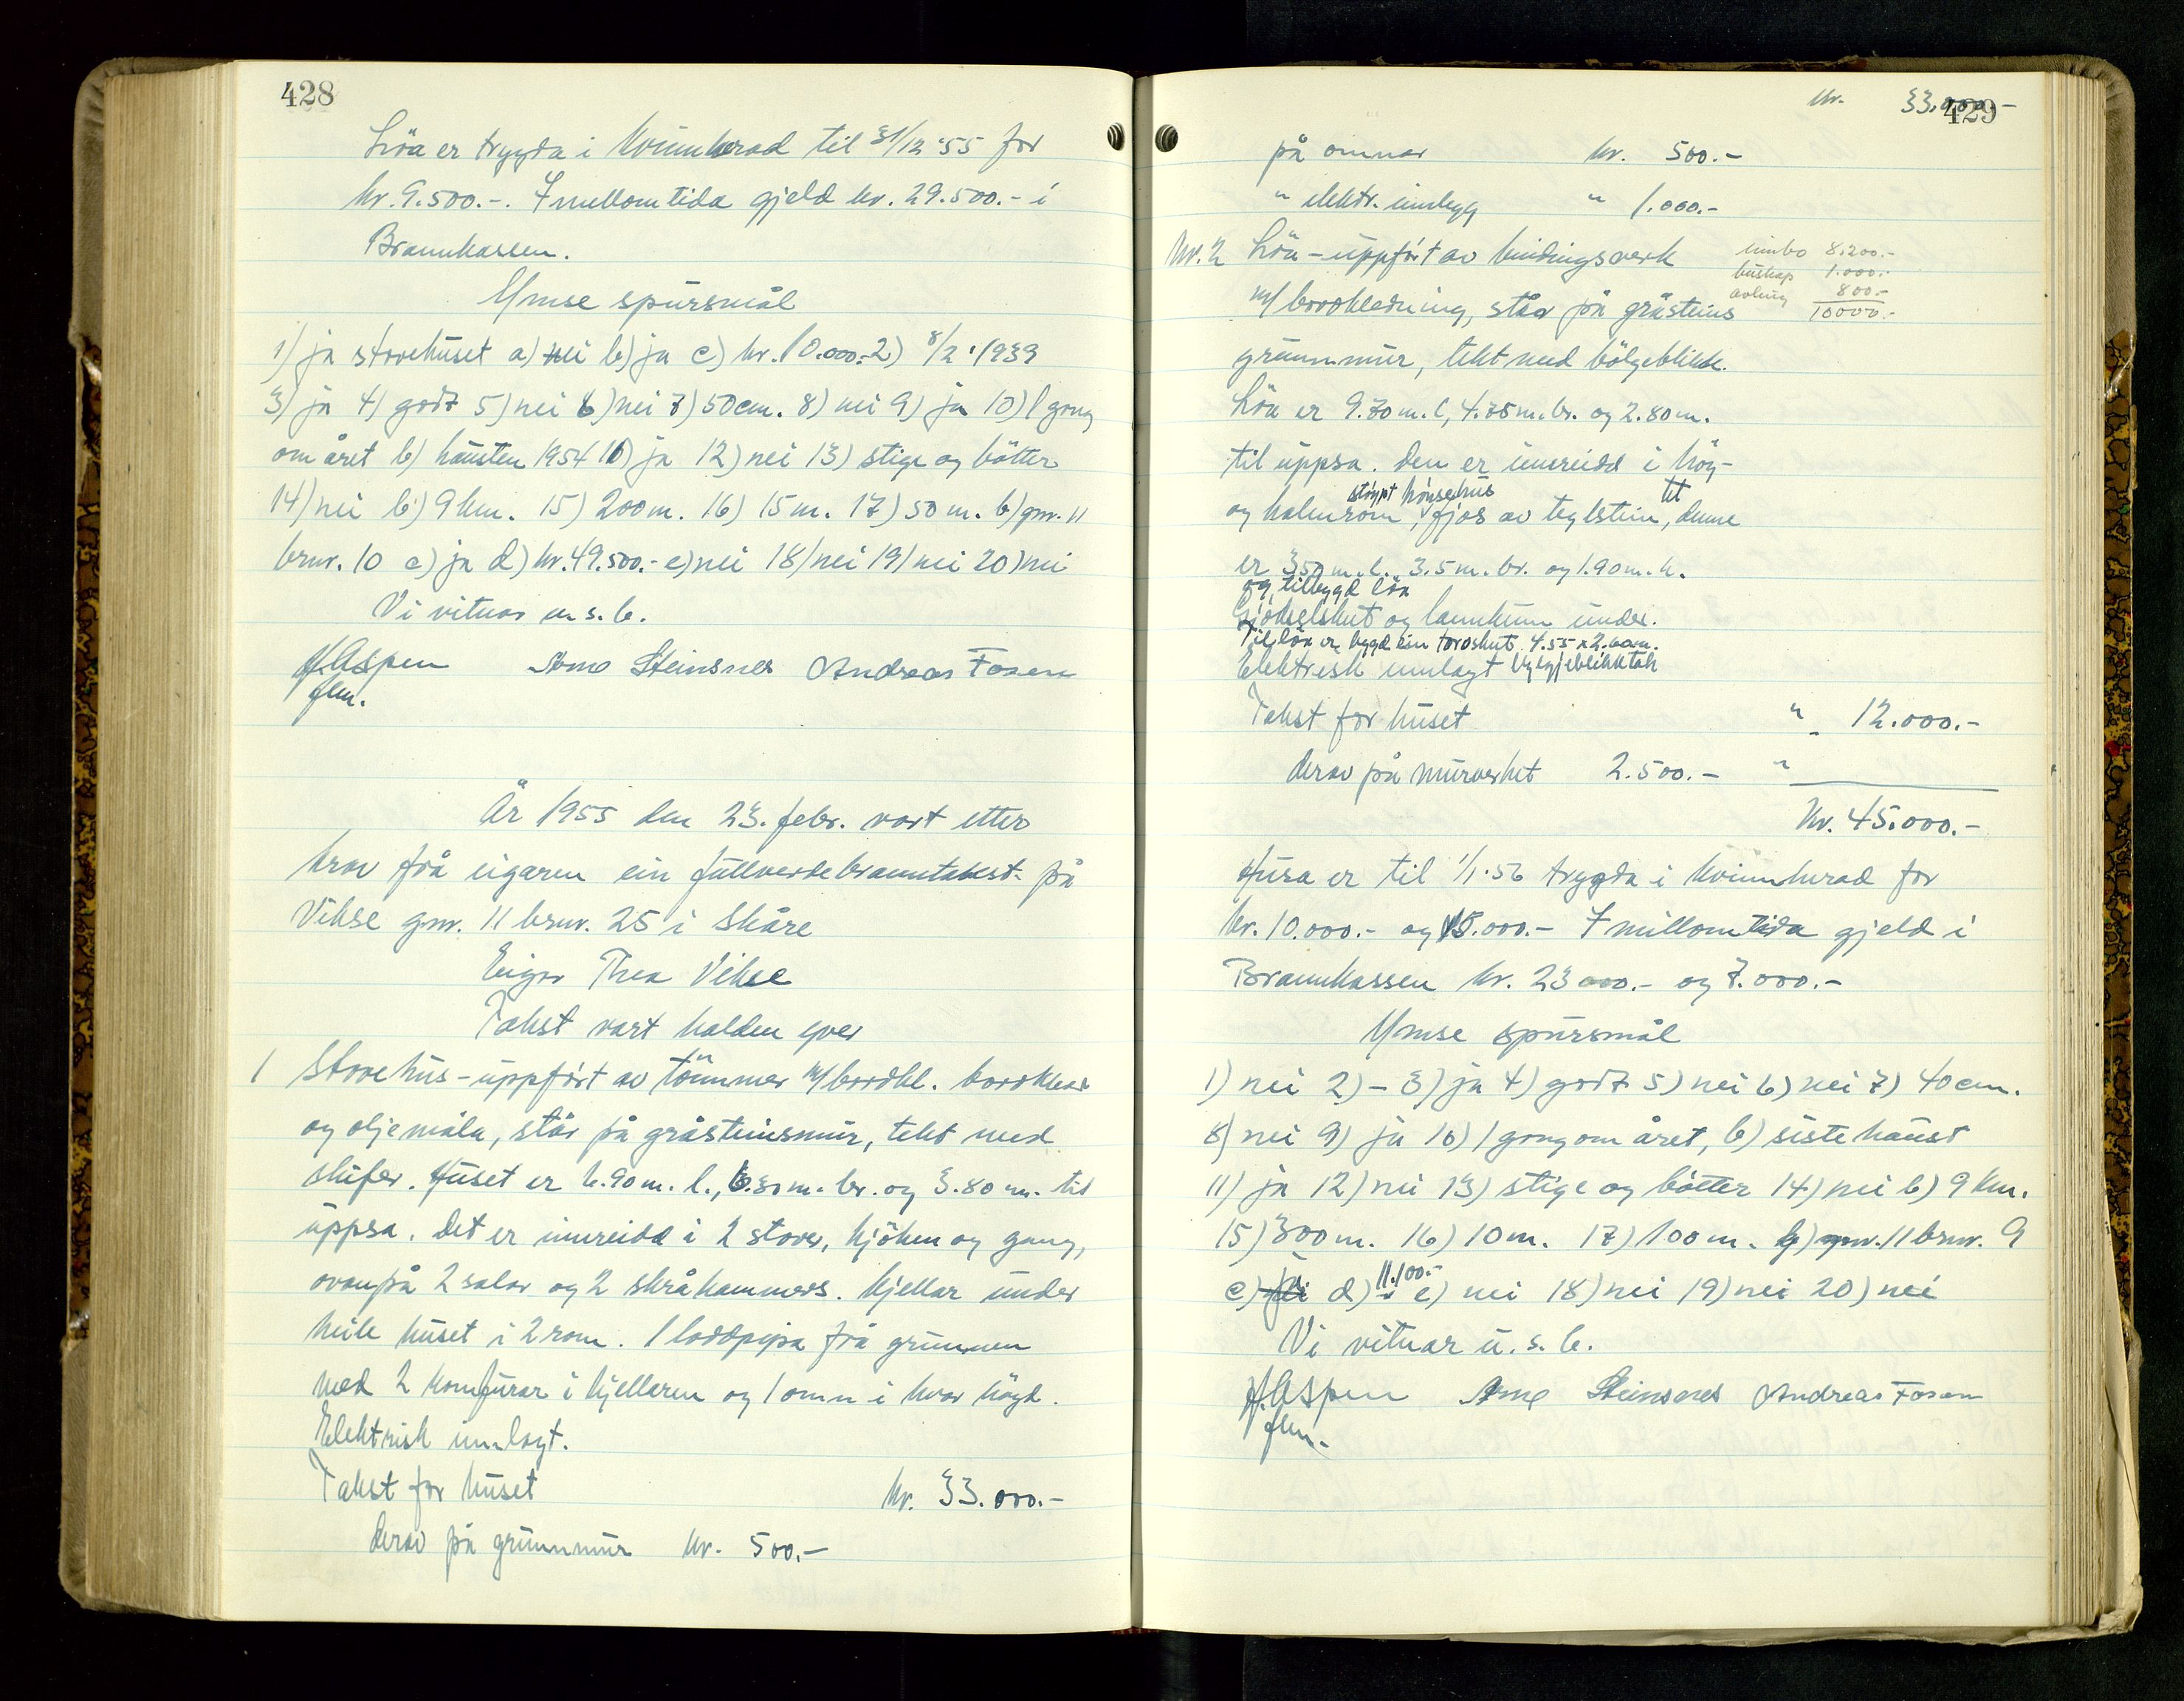 428
Löa er trygda i Kvinnherad til 31/12 '55 for
kr. 9.500.-. I mellomtida gjeld kr. 29.500.- i
Brannkassen.
Ymse spursmål
1) ja stovehuset a) nei b) ja c) kr. 10.000.- 2) 8/2 '1939
3) ja 4) godt 5) nei 6) nei 7) 50cm. 8) nei 9) ja 10) 1 gong
om året b) hausten 1954 11) ja 12) nei 13) stige og bötter
14) nei b) 9 km. 15) 200m. 16) 15m. 17) 50m. b) gnr. 11
brnr. 10 c) ja d) kr. 49.500.- e) nei 18) nei 19) nei 20) nei
Vi vitnar u. s. b.
H Aspen Arne Steinsnes Andreas Fosen
flm.
År 1955 den 23. febr. vart etter
krav frå eigaren ein fullverdebranntakst på
Vikse gnr. 11 brnr. 25 i Skåre
Eigar Thea Vikse
Takst vart halden yver
1 Stovehus - uppfört av tömmer m/bordkl. bordklædt
og oljemåla, står på gråsteinsmur, tekt med
skifer. Huset er 6.90m. l., 6.30m. br. og 3.80m. til
uppsa. Det er innreidd i 2 stover, kjöken og gang,
ovanpå 2 salar og 2 skråkammers. Kjellar under
heile huset i 2 rom. 1 loddpipa frå grunnen
med 2 komfurar i kjellaren og 1 omn i kvar högd.
Elektrisk innlagt.
Takst for huset kr. 33.000.-
derav på grunnmur kr. 500.-
429
kr. 33.000.-
på omnar kr. 500.-
" elektr. innlegg " 1.000.-
Nr. 2 Löa - uppfört av bindingsverk
innbo 8.200.-
buskap 1.000.-
avling 800.-
10000.-
m/bordkledning, står på gråsteins
grunnmur, tekt med bölgeblikk.
Löa er 9.70m. l, 4.75m. br. og 2.80m.
til uppsa. Den er innreidd i höy-
stöypt hönsehus tit
og halmrom, fjos av teglstein, denne
er 3.50m. l. 3.5m. br. og 1.90m. h.
og tilbygd löa
Gjödselskut og lannkum under.
Til löa er bygd ein torvskut 4.55 x 2.60m.
Elektrisk innlagt bylgjeblikktak
Takst for huset " 12.000.-
derav på murverket 2.500.- "
Kr. 45.000.-
Husa er til 1/1.56 trygda i Kvinnherad for
kr. 10.000.- og 15.000.- I millomtida gjeld i
Brannkassen kr. 23000.- og 7.000.-
Ymse spursmål
1) nei 2) - 3) ja 4) godt 5) nei 6) nei 7) 40cm.
8) nei 9) ja 10) 1 gong om året, b) siste haust
11) ja 12) nei 13) stige og bötter 14) nei b) 9 km.
15) 300m. 16) 10m. 17) 100m. b) gnr. 11 brnr. 9
c) ja d) 11.100.- e) nei 18) nei 19) nei 20) nei
Vi vitnar u. s. b.
H. Aspen Arne Steinsnes Andreas Fosen
flm.